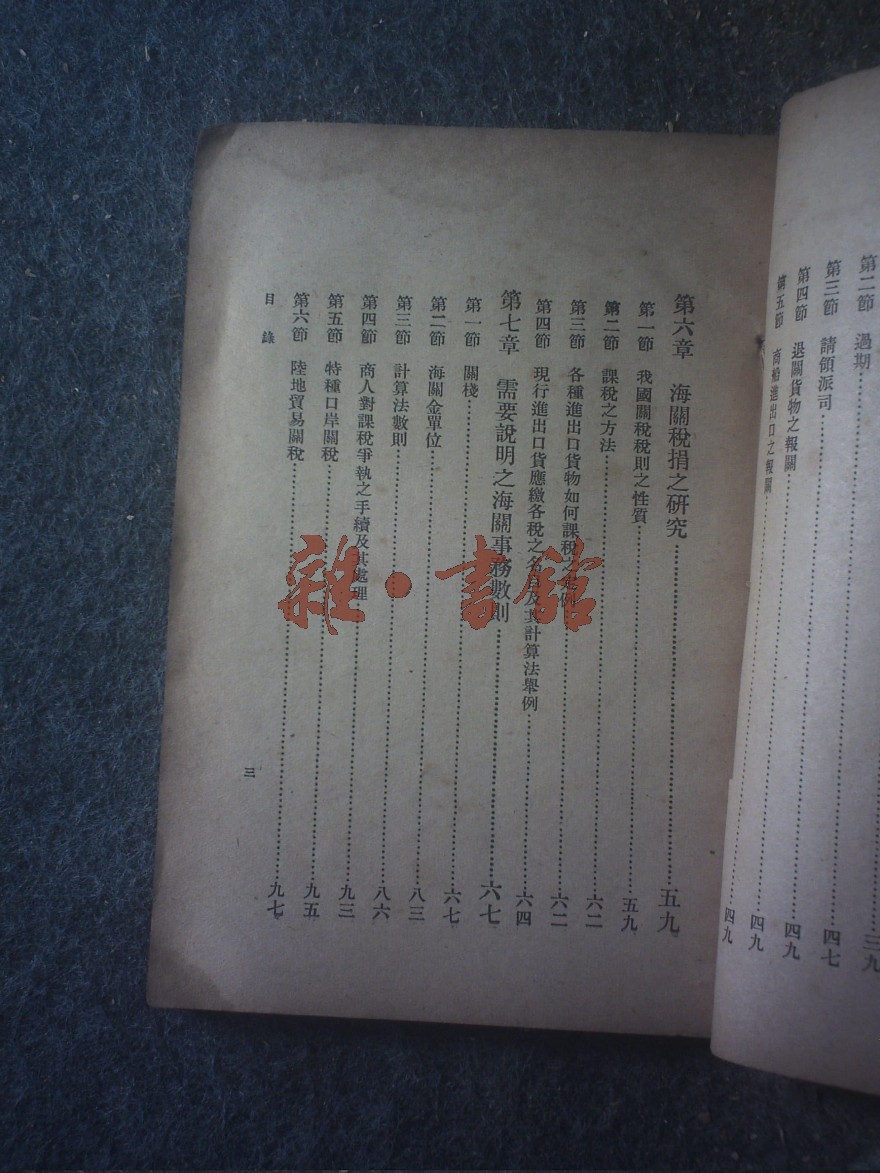 第二節　過期……三九
第三節　請領派司……四七
第四節　退關貨物之報關……四九
第五節　商船進出口之報關……四九
四九
第六章　海關稅捐之研究……五九
第一節　我國關稅稅則之性質……五九
第二節　課稅之方法……六二
第三節　各種進出口貨物如何課稅之定例……六二
第四節　現行進出口貨應繳各稅之名目及其計算法舉例……六四
第七章　需要說明之海關事務數則……六七
第一節　關棧……六七
第二節　海關金單位……八三
第三節　計算法數則……八六
第四節　商人對課稅爭執之手續及其處理……九三
第五節　特種口岸關稅……九五
第六節　陸地貿易關稅……九七
目錄
三
雜·書館